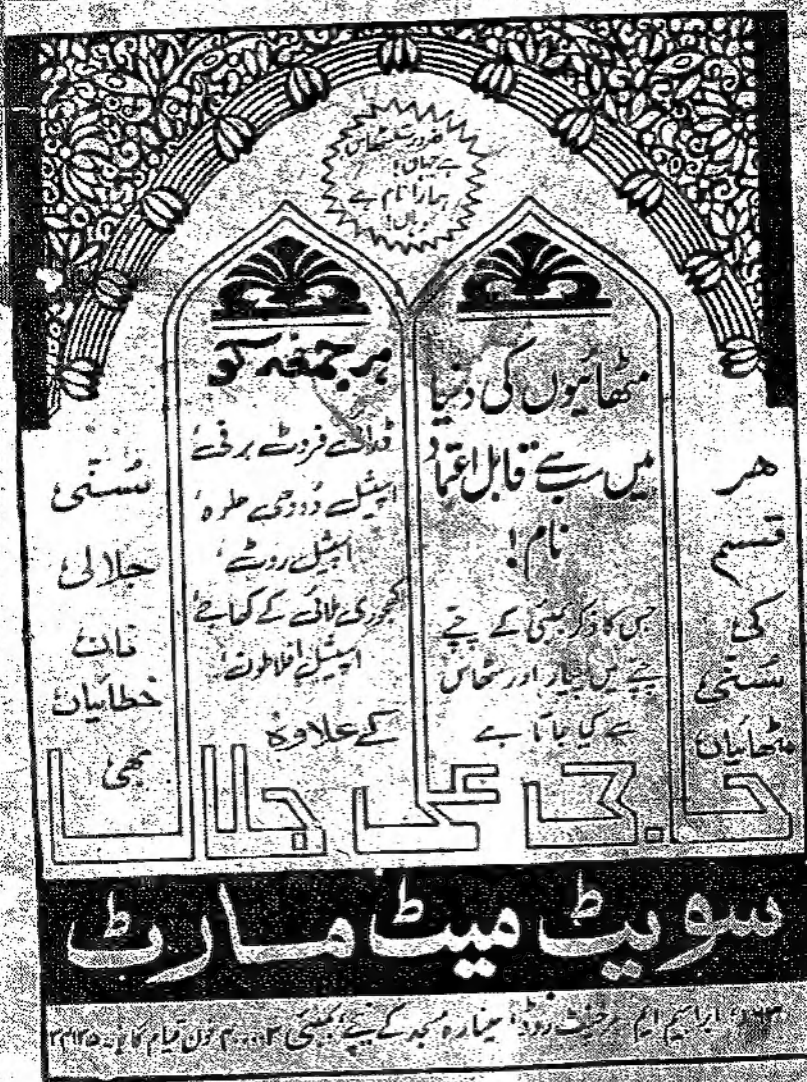 ضرورت مٹھاس
ہے جہاں!
ہمارا نام ہے
وہاں!
ھر
قسم
کی
سُنّی
مٹھائیاں
مٹھائیوں کی دنیا
میں سب سے قابل اعتماد
نام!
جس کا ذکر بمبئی کے چپے
چپے میں پیار اور مٹھاس
سے کیا جاتا ہے
ہر جمعہ کو
فروٹ برفی
اسپیشل دودھی حلوہ
اسپیشل روٹ
کھجوری ملائی کے کھاجے
اسپیشل افلاطون
کے علاوہ
سُنّی
جلالی
نان
خطائیاں
بھی
حاجی علی جلال
سویٹ میٹ مارٹ
ابراہیم ایم مرچنٹ روڈ مینارہ مسجد کے نیچے بمبئی ۳